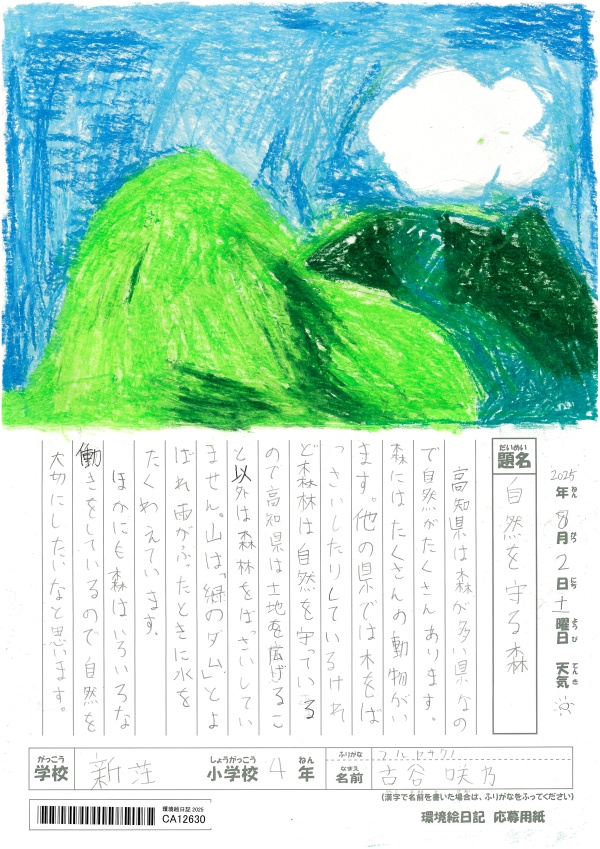 2025年8月2日土曜日 天気
ねん がつ にち ようび てんき
だいめい
題名
自然を守る森
高知県は森が多い県なの
で自然がたくさんあります。
森にはたくさんの動物がい
ます。他の県では木をば
っさいしたりしているけれ
ど森林は自然を守っている
ので高知県は土地を広げるこ
と以外は森林をばっさいしてい
ません。山は「緑のダム」とよ
ばれ雨がふったときに水を
たくわえています。
ほかにも森はいろいろな
働きをしているので自然を
大切にしたいなと思います。
がっこう
学校 新荘
しょうがっこう
小学校 4
ねん
年
ふりがな
なまえ
名前 古谷 咲乃
(漢字で名前を書いた場合は、ふりがなをふってください)
環境絵日記 2025
CA12630
環境絵日記 応募用紙